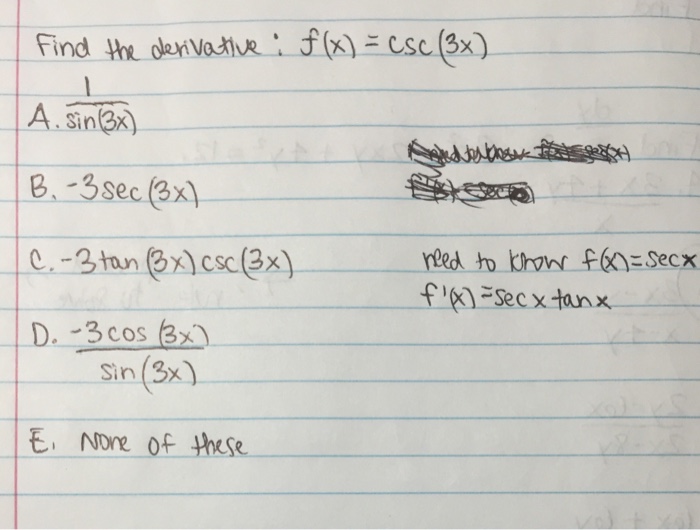 Find the derivative : f(x) = csc (3x)
A. 1/sin(3x)
B. -3 sec (3x)
C. -3 tan (3x) csc (3x)
need to know f(x) = sec x
f'(x) = sec x tan x
D. -3 cos (3x)
sin (3x)
E. None of these